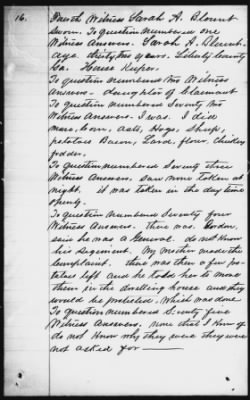 16.
Fourth Witness Sarah A. Blount
Sworn. To question numbered one
Witness Answers. Sarah A. Blount
age thirty two years. Liberty County
Ga. House Keeper.
To question numbered two Witness
Answers - daughter of Claimant
To question numbered Seventy two
Witness Answers - I was. I did
mare, Corn, oats, Hogs, Sheep,
potatoes Bacon, Lard flour, Chickens
fodder.
To question numbered Seventy three
Witness Answers, saw none taken at
night. it was taken in the day time
openly.
To question numbered Seventy four
Witness Answers. There was.
said he was a General. do not know
his Regiment. My mother made the
Complaint. there was then a few po-
tatoes left and he told her to move
them in the dwelling house and they
would be protected. which was done
To question numbered Seventy five
Witness Answers. none that I know of
do not know why they were they were
not asked for